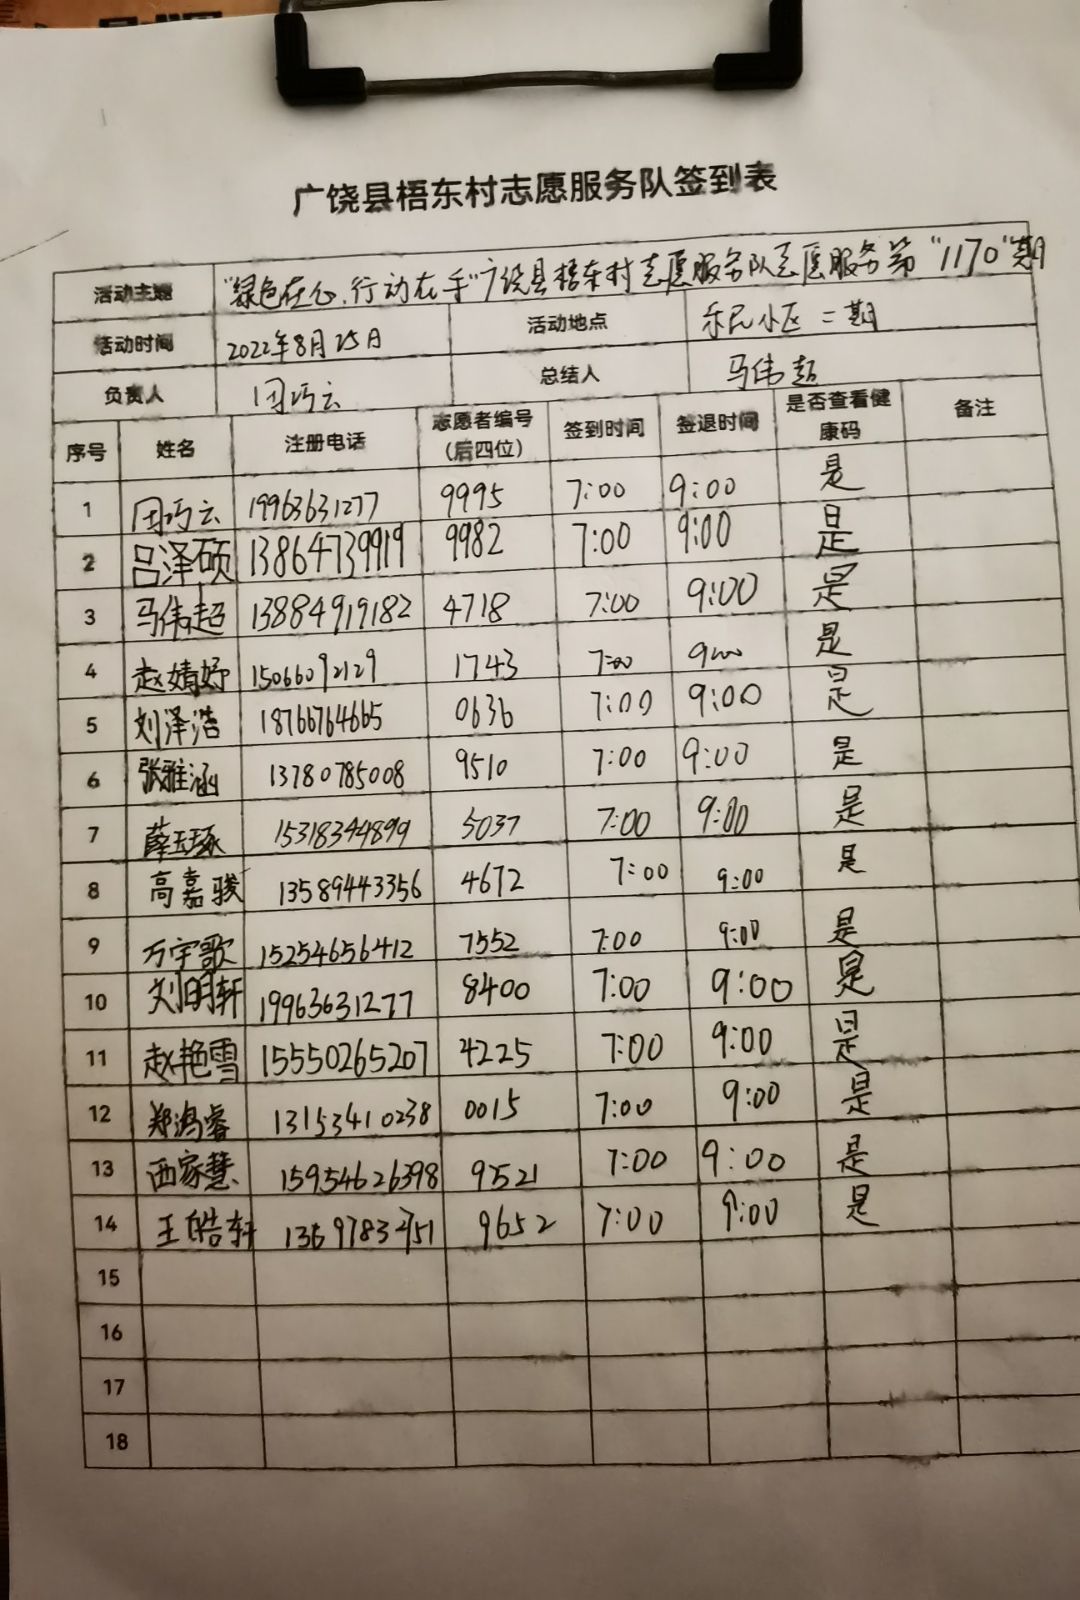 广饶县梧东村志愿服务队签到表
活动主题 "绿色在心,行动在手"广饶县梧东村志愿服务队志愿服务第"1170"期
活动时间 2022年8月25日 活动地点 乐民小区二期
负责人 闫巧云 总结人 马伟超
序号 姓名 注册电话 志愿者编号(后四位) 签到时间 签退时间 是否查看健康码 备注
1 闫巧云 19963631277 9995 7:00 9:00 是
2 吕泽硕 13864739919 9982 7:00 9:00 是
3 马伟超 13884919182 4718 7:00 9:00 是
4 赵婧妤 15066092129 1743 7:00 9:00 是
5 刘泽浩 18766764665 0636 7:00 9:00 是
6 张雅涵 13780785008 9510 7:00 9:00 是
7 薛玉琢 15318344899 5037 7:00 9:00 是
8 高嘉骏 13589443356 4672 7:00 9:00 是
9 万宇歌 15254656412 7552 7:00 9:00 是
10 刘明轩 19963631277 8400 7:00 9:00 是
11 赵艳雪 15550265207 4225 7:00 9:00 是
12 郑鸿睿 13153410238 0015 7:00 9:00 是
13 西家慧 15954626398 9521 7:00 9:00 是
14 王皓轩 9652 7:00 9:00 是
15
16
17
18